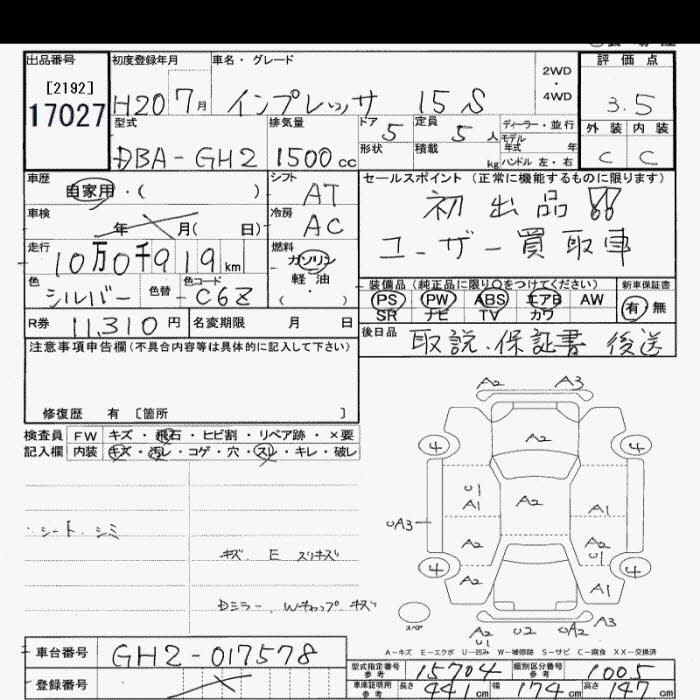 出品番号 初度登録年月 車名・グレード 2WD・4WD 評価点
[2192]
17027 H20 7月 インプレッサ 15S 3.5
型式 排気量 ドア 5 定員 5人 ディーラー・並行 外装 内装
DBA-GH2 1500cc 形状 積載 kg モデル年式 年 ハンドル 左・右 C C
車歴 自家用・( ) シフト AT セールスポイント (正常に機能するものに限ります)
車検 年 月( 日) 冷房 AC 初出品!!
走行 10万0千919km 燃料 ガソリン ユーザー買取車
色 シルバー 色替 - 色コード C6Z 軽油・( ) 装備品 (純正品に限り○をつけてください) 新車保証書
PS PW ABS エアB AW 有 無
SR ナビ TV カワ
R券 11,310円 名変期限 月 日 後日品 取説.保証書 後送
注意事項申告欄(不具合内容等は具体的に記入して下さい)
修復歴 有 [箇所 ]
検査員 FW キズ・飛石・ヒビ割・リペア跡・×要
記入欄 内装 キズ・汚レ・コゲ・穴・スレ・キレ・破レ
・シート.シミ
キズ E スリキズ
Dミラー.Wキャップ キズ
A2 A3
4 A2 4
U1
A1 A2 A1
UA3
A2 A2
U1
4 4
A2 A1
スペア
A2
U2 U2 UA2 A3
A-キズ E-エクボ U-凹み W-補修跡 S-サビ C-腐食 XX-交換済
車台番号 GH2-017578
型式指定番号 参考 15704 類別区分番号 参考 1005
登録番号
車庫証明用 参考 長さ 441cm 幅 174cm 高さ 147cm